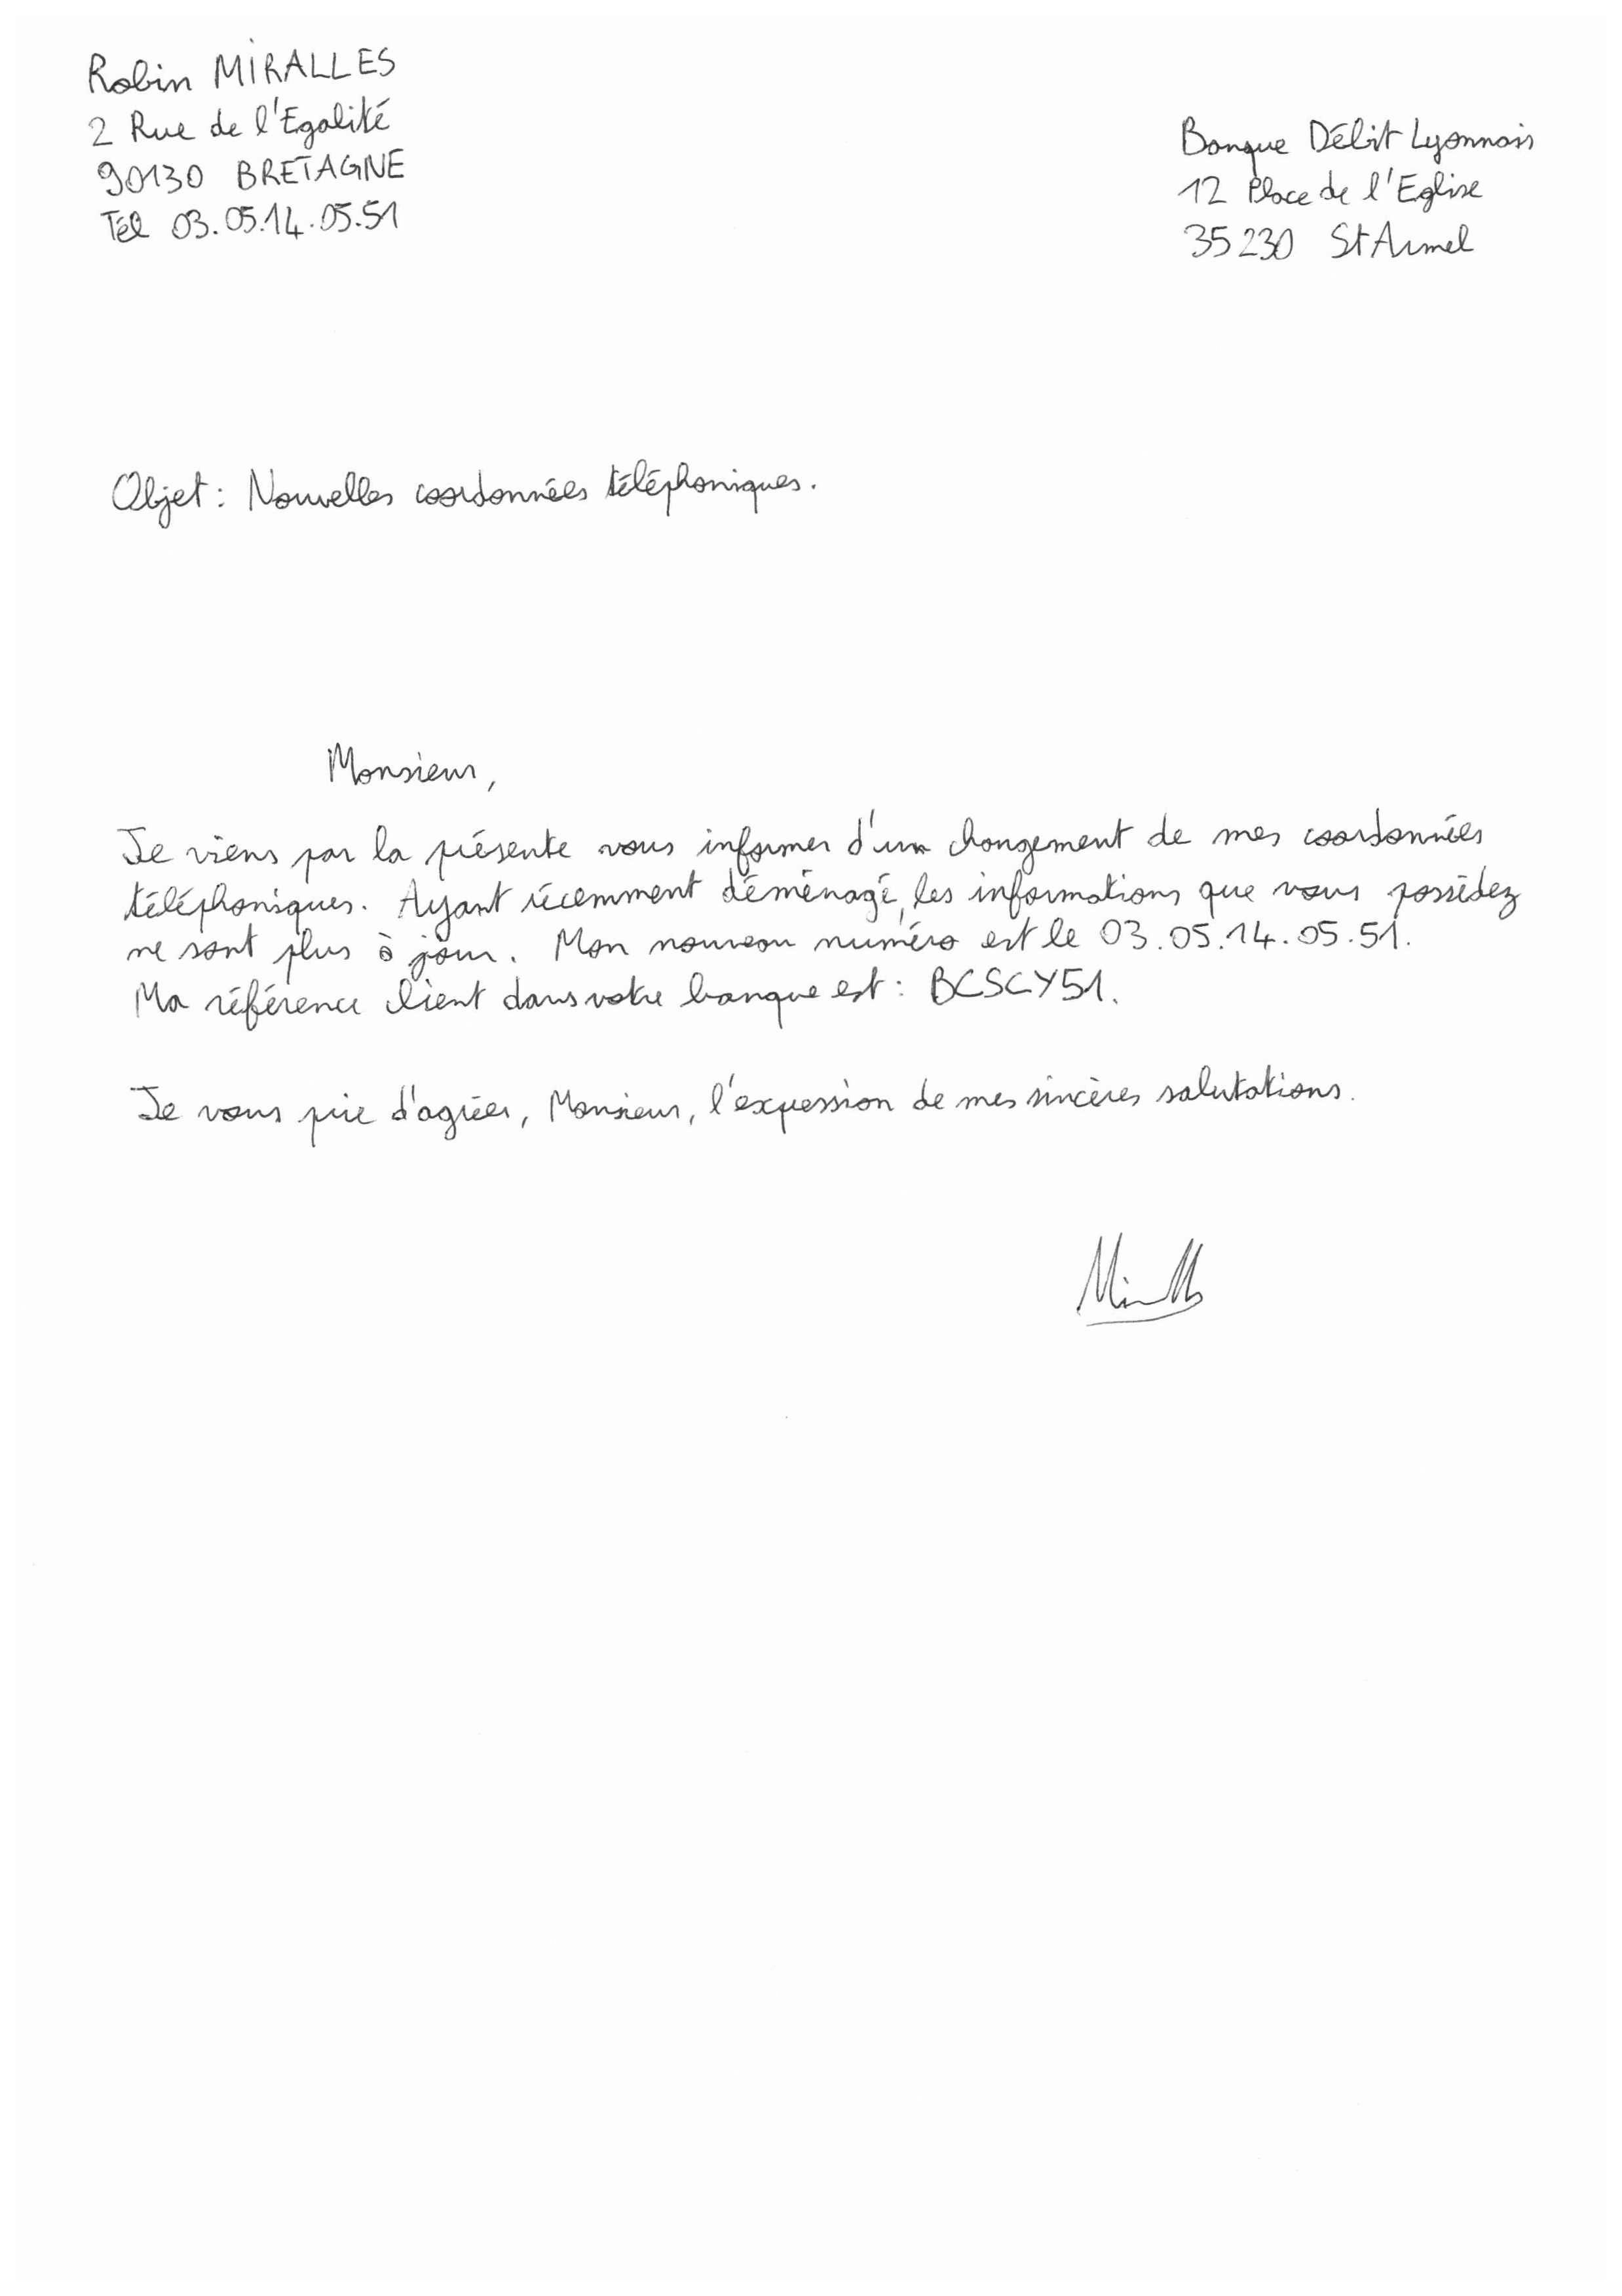 Robin MIRALLES
2 Rue de l'Egalité
90130 BRETAGNE
Tél 03.05.14.05.51
Banque Débit Lyonnais
12 Place de l'Eglise
35230 St Armel
Objet : Nouvelles coordonnées téléphoniques.
Monsieur,
Je viens par la présente vous informer d'un changement de mes coordonnées
téléphoniques. Ayant récemment déménagé, les informations que vous possédez
ne sont plus à jour. Mon nouveau numéro est le 03.05.14.05.51.
Ma référence client dans votre banque est : BCSCY51.
Je vous prie d'agréer, Monsieur, l'expression de mes sincères salutations.